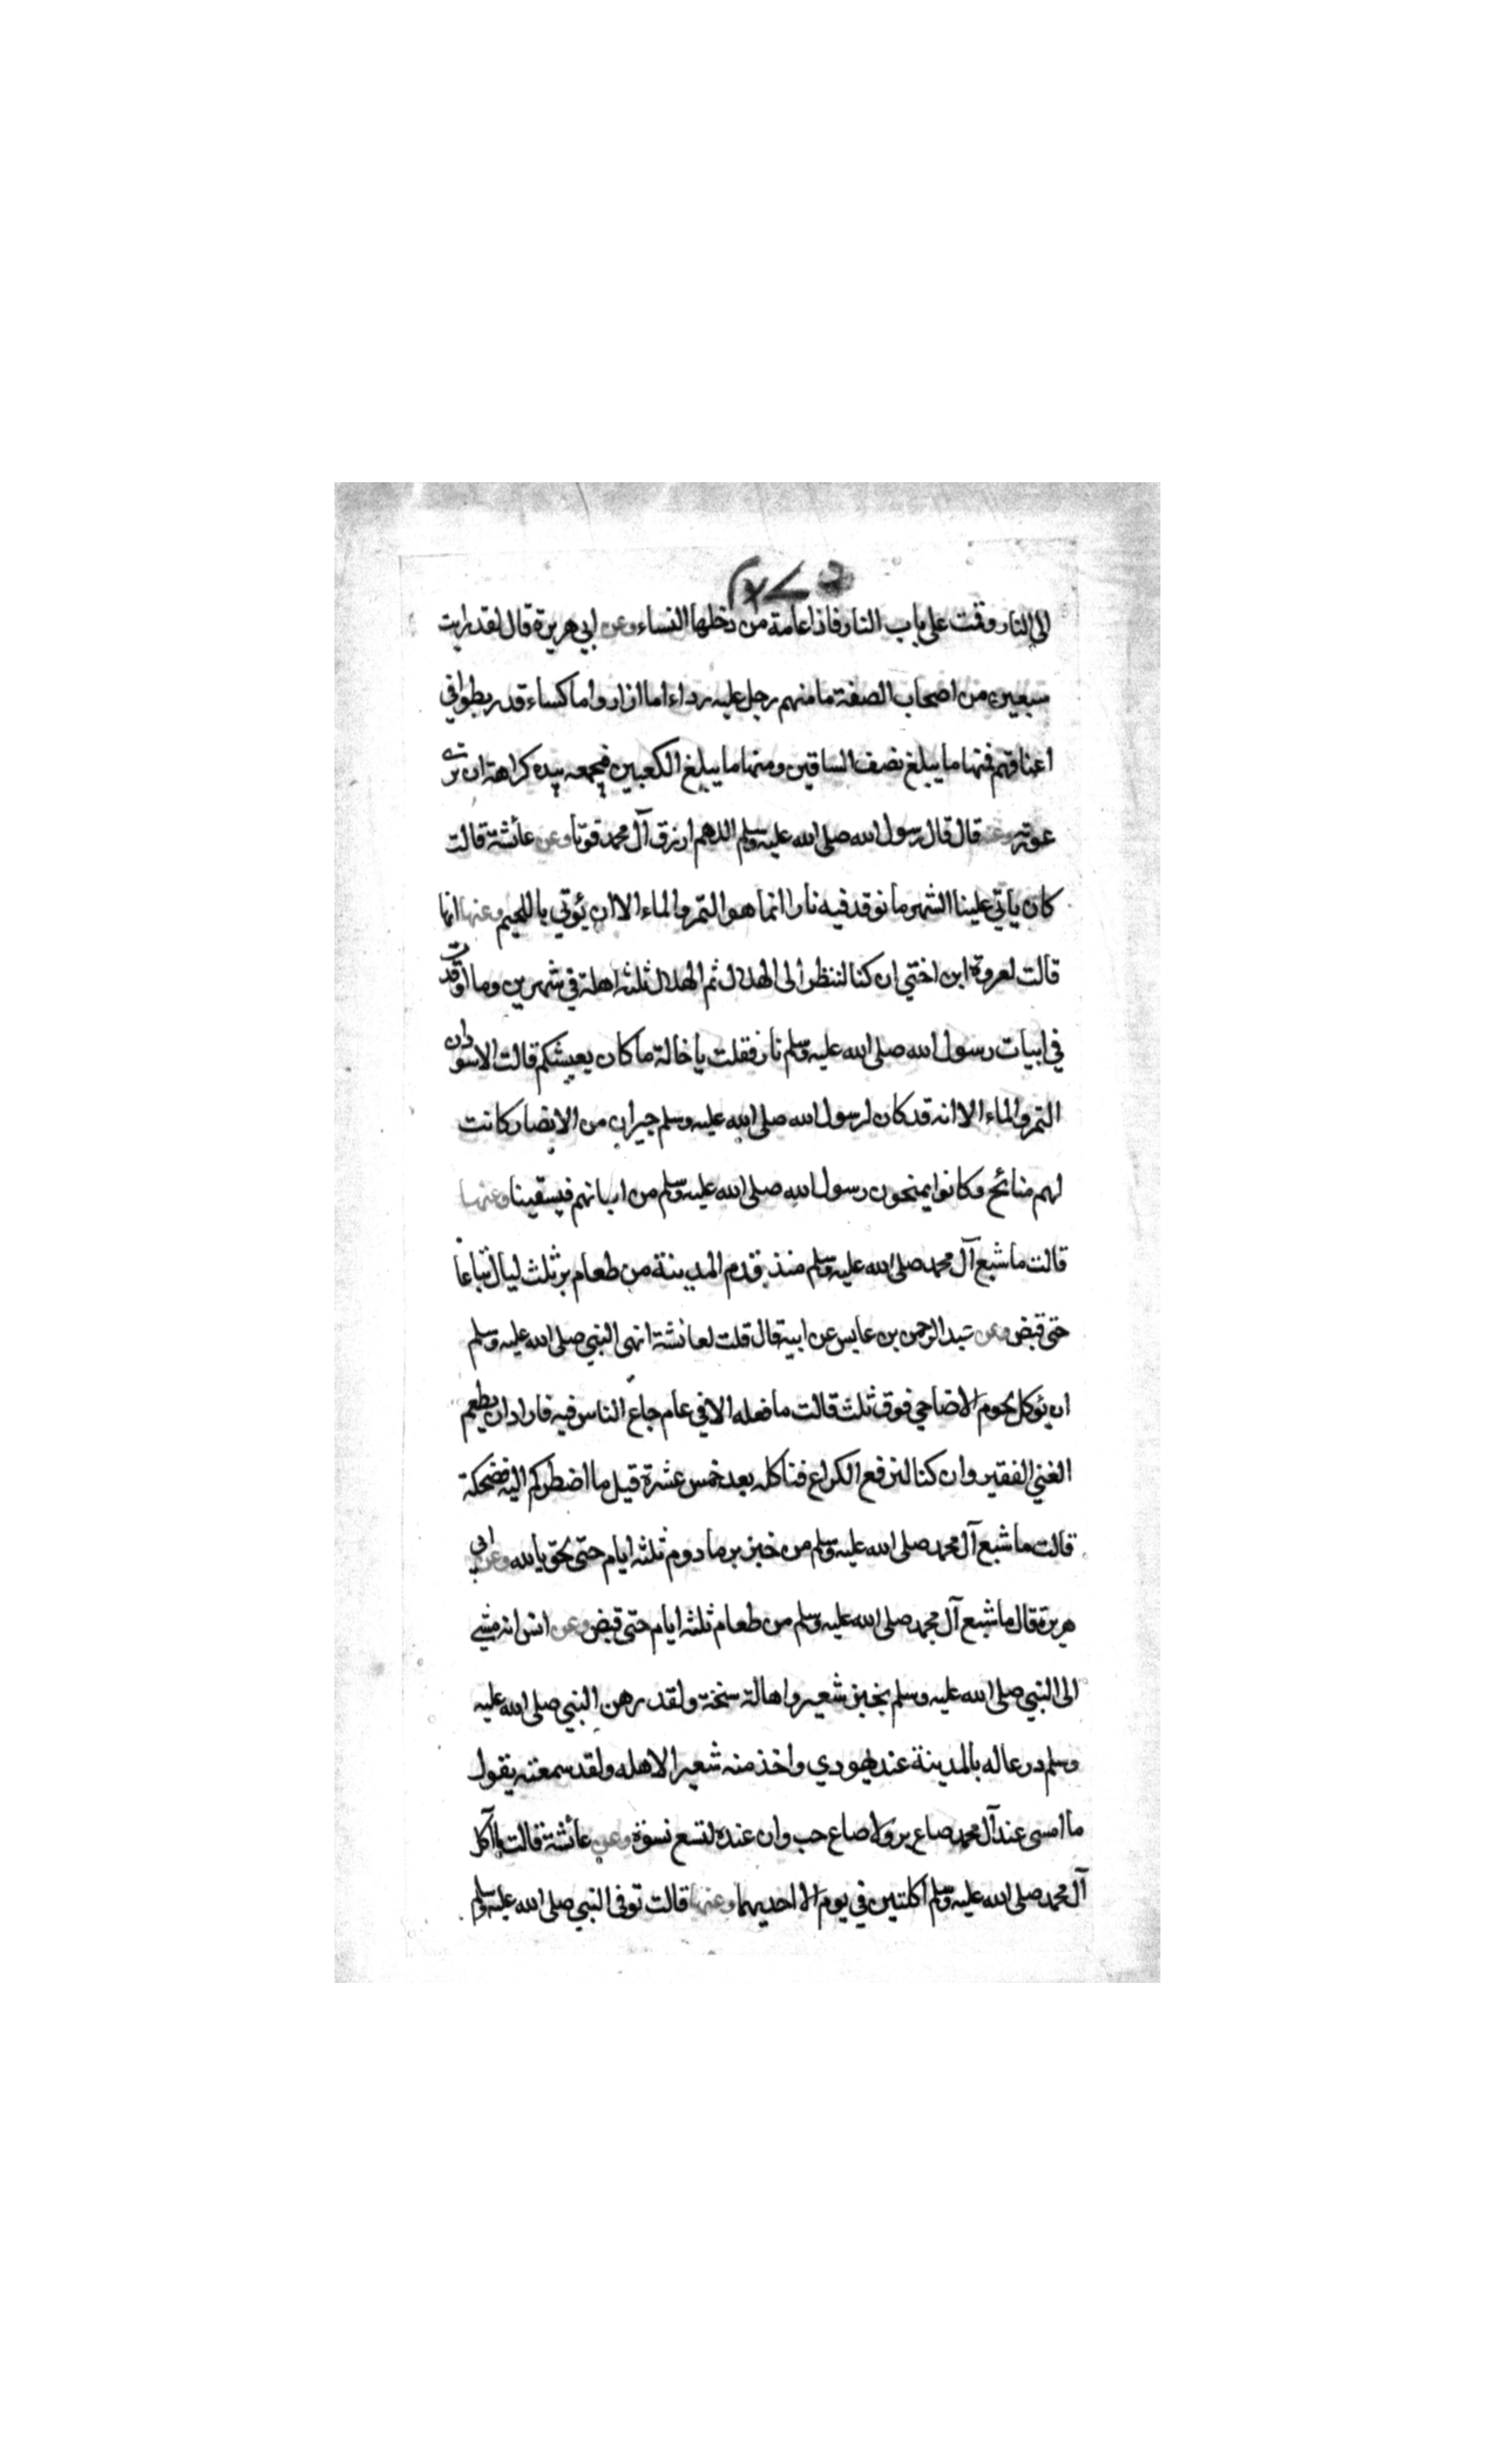 الى النار وقمت على باب النار فاذا عامة من دخلها النساء وعن ابي هريرة قال لقد رايت
سبعين من اصحاب الصفة ما منهم رجل عليه رداء اما ازار واما كساء قد ربطوا في
اعناقهم فمنها ما يبلغ نصف الساقين ومنها ما يبلغ الكعبين فيجمعه بيده كراهة ان ترى
عورته وعنه قال قال رسول الله صلى الله عليه وسلم اللهم ارزق آل محمد قوتا وعن عائشة قالت
كان ياتي علينا الشهر ما نوقد فيه نارا انما هو التمر والماء الا ان يؤتي باللحيم وعنها انها
قالت لعروة ابن اختي ان كنا لننظر الى الهلال ثم الهلال ثلثة اهلة في شهرين وما اوقدت
في ابيات رسول الله صلى الله عليه وسلم نار فقلت يا خالة ما كان يعيشكم قالت الاسودان
التمر والماء الا انه قد كان لرسول الله صلى الله عليه وسلم جيران من الانصار كانت
لهم منائح وكانوا يمنحون رسول الله صلى الله عليه وسلم من البانهم فيسقينا وعنها
قالت ما شبع آل محمد صلى الله عليه وسلم منذ قدم المدينة من طعام بر ثلث ليال تباعا
حتى قبض وعن عبد الرحمن بن عابس عن ابيه قال قلت لعائشة انهى النبي صلى الله عليه وسلم
ان يؤكل لحوم الاضاحي فوق ثلث قالت ما فعله الا في عام جاع الناس فيه فاراد ان يطعم
الغني الفقير وان كنا لنرفع الكراع فناكله بعد خمس عشرة قيل ما اضطركم اليه فضحكة
قالت ما شبع آل محمد صلى الله عليه وسلم من خبز بر مادوم ثلثة ايام حتى لحق بالله وعن ابي
هريرة قال ما شبع آل محمد صلى الله عليه وسلم من طعام ثلثة ايام حتى قبض وعن انس انه مشى
الى النبي صلى الله عليه وسلم بخبز شعير واهالة سنخة ولقد رهن النبي صلى الله عليه
وسلم درعا له بالمدينة عند يهودي واخذ منه شعيرا لاهله ولقد سمعته يقول
ما امسى عند آل محمد صاع بر ولا صاع حب وان عنده لتسع نسوة وعن عائشة قالت ما آكل
آل محمد صلى الله عليه وسلم اكلتين في يوم الا احديهما وعنها قالت توفى النبي صلى الله عليه وسلم